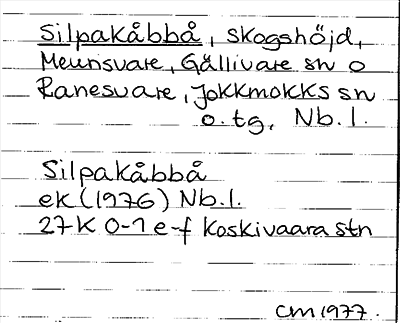 Silpakåbbå, skogshöjd,
Meunsvare, Gällivare sn o
Ranesvare, Jokkmokks sn
o. tg, Nb.l.
Silpakåbbå
ek (1976) Nb.l.
27K 0-1 e-f Koskivaara stn
CM 1977.